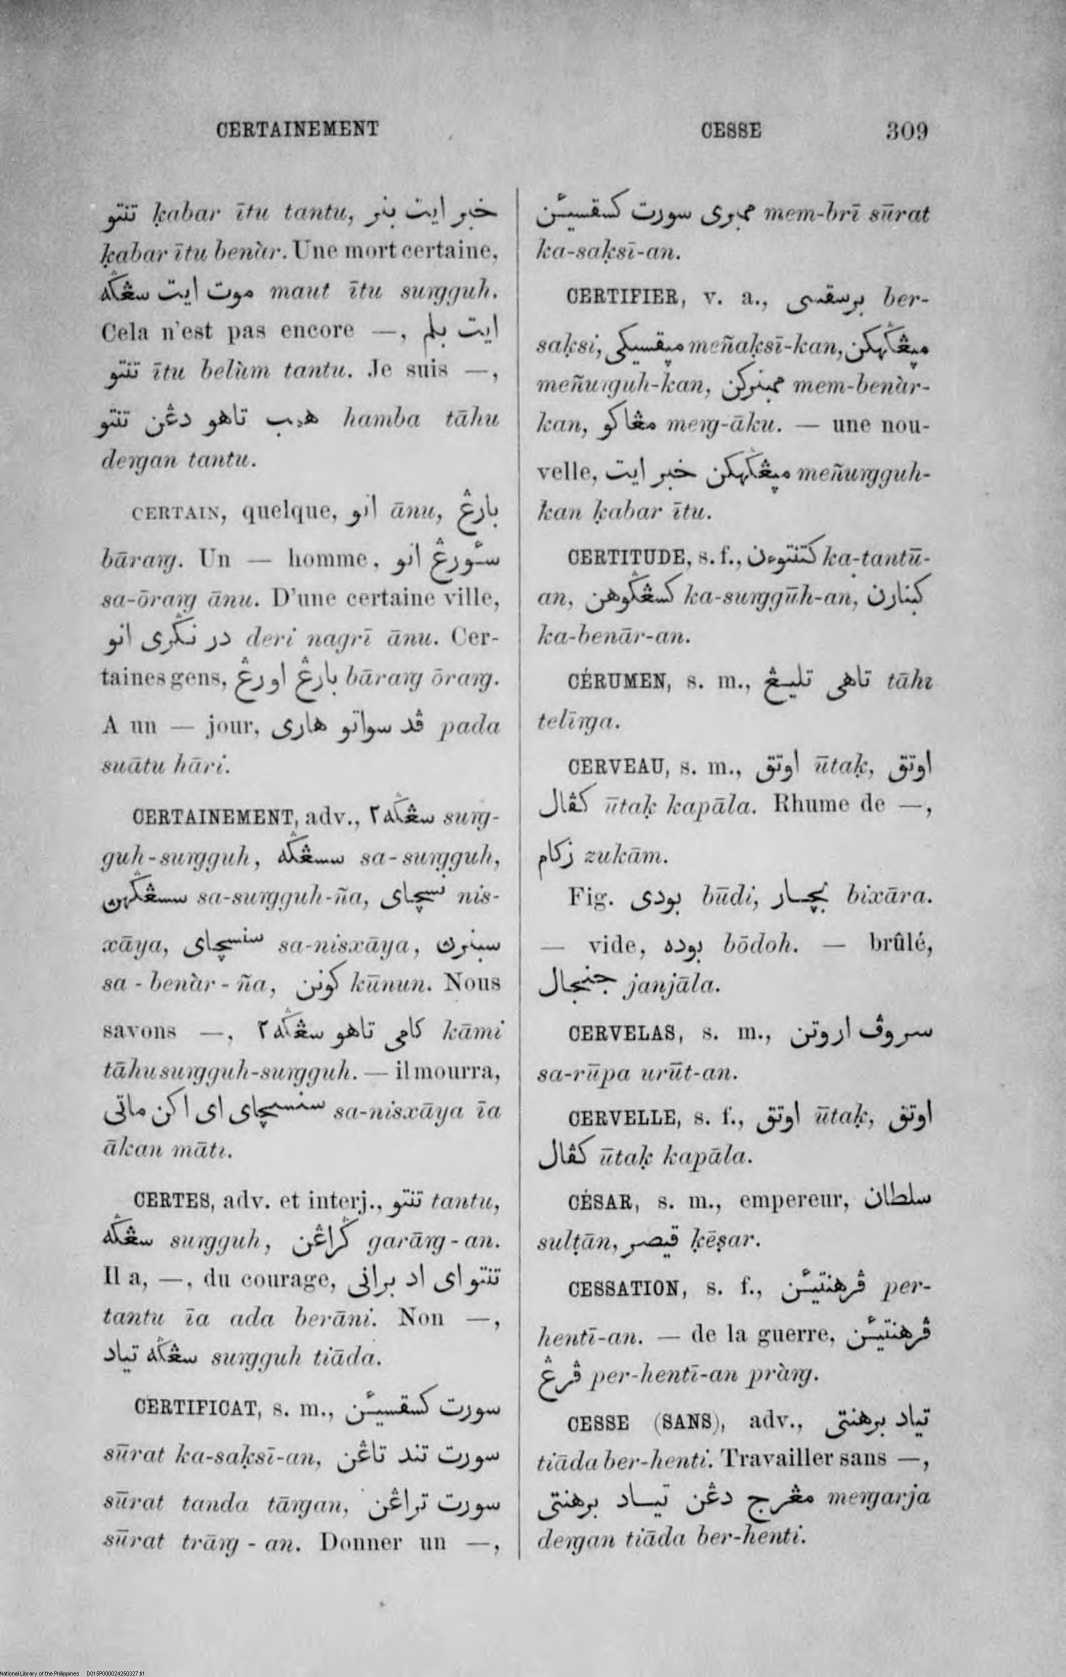 CERTAINEMENT CESSE 309
تنتو ḳabar ītu tantu, خبر ايت بنر
ḳabar ītu benàr. Une mort certaine,
موت ايت سڠگه maut ītu suṛgguh.
Cela n'est pas encore —, ايت بلم
تنتو ītu belùm tantu. Je suis —,
همب تاهو دڠن تنتو hamba tāhu
deṛgan tantu.
CERTAIN, quelque, انو ānu, بارڠ
bāraṛg. Un — homme, سئورڠ انو
sa-ōraṛg ānu. D'une certaine ville,
در نگري انو deri nagrī ānu. Cer-
taines gens, بارڠ اورڠ bāraṛg ōraṛg.
A un — jour, ڤد سواتو هاري pada
suātu hāri.
CERTAINEMENT, adv., سڠگه٢ suṛg-
guh-suṛgguh, سسڠگه sa-suṛgguh,
سسڠگهن sa-suṛgguh-ña, نسچاي nis-
xāya, سنسچاي sa-nisxāya, سبنرن
sa-benàr-ña, كونن kūnun. Nous
savons —, كامي تاهو سڠگه٢ kāmi
tāhu suṛgguh-suṛgguh. — il mourra,
سنسچاي اي اكن ماتي sa-nisxāya īa
ākan māti.
CERTES, adv. et interj., تنتو tantu,
سڠگه suṛgguh, گراڠن garāṛg-an.
Il a, —, du courage, تنتو اي اد براني
tantu īa ada berāni. Non —,
سڠگه تياد suṛgguh tiāda.
CERTIFICAT, s. m., سورت كسقسيئن
sūrat ka-saḳsī-an, سورت تند تاڠن
sūrat tanda tāṛgan, سورت تراڠن
sūrat trāṛg-an. Donner un —,
ممبري سورت كسقسيئن mem-brī sūrat
ka-saḳsī-an.
CERTIFIER, v. a., برسقسي ber-
saḳsi, مڽقسيكن meñaḳsī-kan, مڽڠگهكن
meñuṛguh-kan, ممبنركن mem-benàr-
kan, مڠاكو meṛg-āku. — une nou-
velle, مڽڠگهكن خبر ايت meñuṛgguh-
kan ḳabar ītu.
CERTITUDE, s. f., كتنتوءن ka-tantū-
an, كسڠگوهن ka-suṛggūh-an, كبنارن
ka-benār-an.
CÉRUMEN, s. m., تاهي تليڠ tāhi
telīṛga.
CERVEAU, s. m., اوتق ūtaḳ, اوتق
كڤال ūtaḳ kapāla. Rhume de —,
زكام zukām.
Fig. بودي būdi, بچار bixāra.
— vide, بوده bōdoh. — brûlé,
جنجال janjāla.
CERVELAS, s. m., سروڤ اروتن
sa-rūpa urūt-an.
CERVELLE, s. f., اوتق ūtaḳ, اوتق
كڤال ūtaḳ kapāla.
CÉSAR, s. m., empereur, سلطان
sulṭān, قيصر ḳēṣar.
CESSATION, s. f., ڤرهنتيئن per-
hentī-an. — de la guerre, ڤرهنتيئن
ڤرڠ per-hentī-an pràṛg.
CESSE (SANS), adv., تياد برهنتي
tiāda ber-henti. Travailler sans —,
مڠرج دڠن تياد برهنتي meṛgarja
deṛgan tiāda ber-henti.
National Library of the Philippines